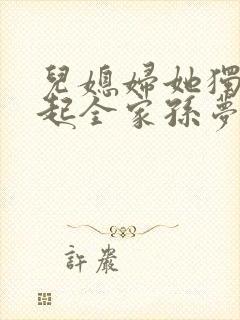 兒媳婦她獨
起全家孫夢
許嚴